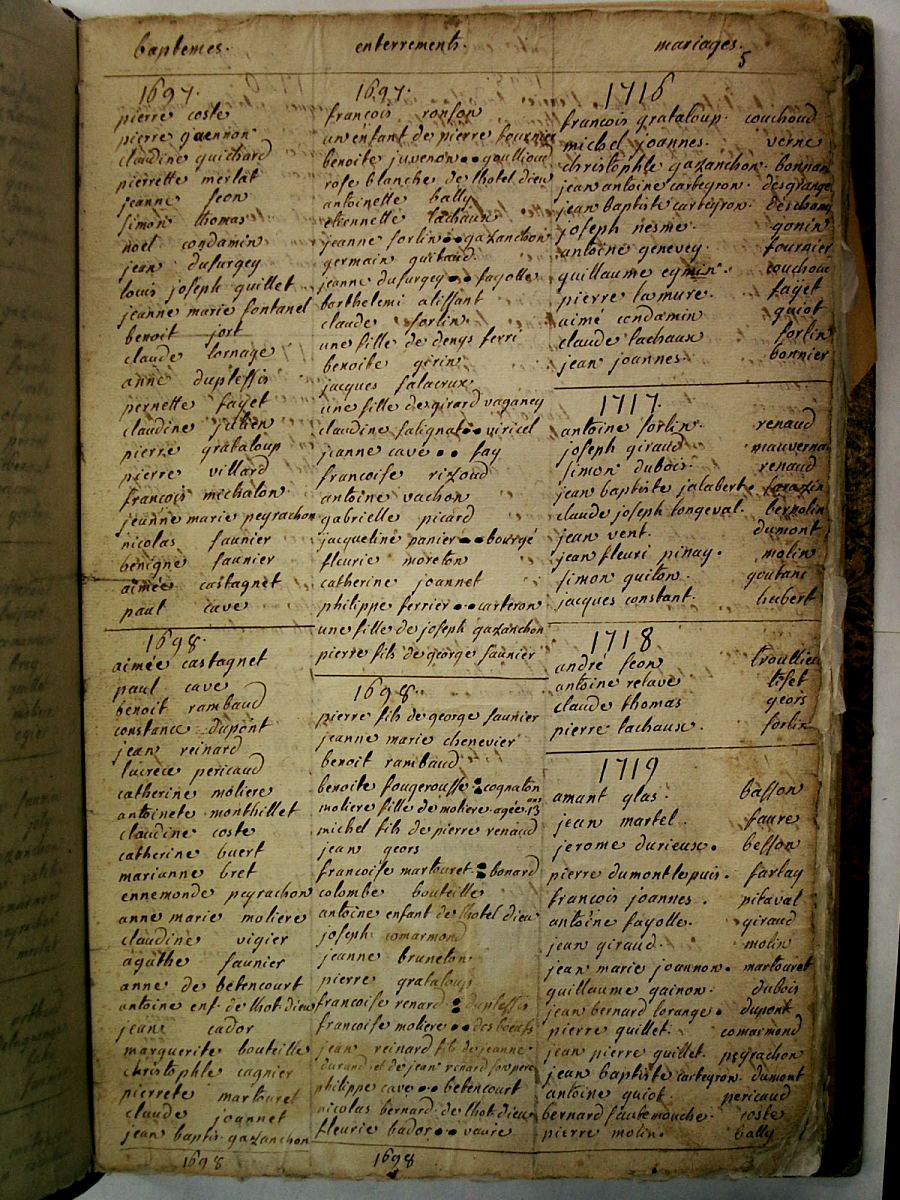 baptemes.
1697.
pierre coste
pierre gaennon
claudine guichard
pierrette merlat
jeanne seon
simon thomas
noel condamin
jean dusurgey
louis joseph guillet
jeanne marie fontanel
benoit jort
claude lornage
anne duplessis
pernette fayet
claudine jullien
pierre grataloup
pierre villard
françois michalon
jeanne marie peyrachon
nicolas saunier
benigne saunier
aimée castagnet
paul cave
1698.
aimée castagnet
paul cave
benoit rambaud
constance dupont
jean reinard
lucrece pericaud
catherine moliere
antoinete monthillet
claudine coste
catherine buert
marianne bret
ennemonde peyrachon
anne marie moliere
claudine vigier
agathe saunier
anne de betencourt
antoine enf. de lhot. dieu
jean cador
marguerite bouteille
christophle cagnier
pierrete martouret
claude joannet
jean baptis. gazanchon
1698
enterrements.
1697.
françois ronson
un enfant de pierre fournier
benoite juvenon .. goullioud
rose blanche de lhotel dieu
antoinette bally
etiennette lachaux
jeanne forlin .. gazanchon
germain guitaud
jeanne dusurgey .. fayolle
barthelemi alissant
claude forlin
une fille de denys ferri
benoite gerin
jacques salacrux
une fille de girard vaganey
claudine salignat .. viricel
jeanne cave .. fay
françoise rizoud
antoine vachon
gabrielle picard
jacqueline panier .. bourgé
fleurie moreton
catherine joannet
philippe ferrier .. carteron
une fille de joseph gazanchon
pierre fils de george saunier
1698.
pierre fils de george saunier
jeanne marie chenevier
benoit rambaud
benoite fougerousse : cognaton
moliere fille de moliere agée 13 ans
michel fils de pierre renaud
jean geors
françoise martouret : bonard
colombe bouteille
antoine enfant de lhotel dieu
joseph comarmond
jeanne bruneton
pierre grataloup
françoise renard : duplessis
françoise moliere .. des boeufs
jean reinard fils de jeanne
durand et de jean renard son pere
philippe cave .. betencourt
nicolas bernard de lhot. dieu
fleurie bador .. vaure
1698
mariages.
5
1716
françois grataloup. couchoud
michel joannes. verne
christophle gazanchon. bonnan
jean antoine carteyron. desgrange
jean baptiste carteyron. descham
joseph nesme. gonin
antoine genevey. fournier
guillaume eymin. couchou
pierre lamure. fayet
aimé condamin guiot
claude lachaux forlin
jean joannes. bonnier
1717.
antoine forlin. renaud
joseph giraud mauverna
simon dubois. renaud
jean baptiste jalabert. sarazin
claude joseph longeval. bernolin
jean vent. dumont
jean fleuri pinay. molin
simon guiton. goutans
jacques constant. hubert
1718
andré seon troullieu
antoine relave tiset
claude thomas geors
pierre lachaux forlin
1719
amant glas. basson
jean martel. faure
jerome durieux. besson
pierre dumont le puis. farlay
françois joannes. pitaval
antoine fayolle. giraud
jean giraud. molin
jean marie joannon. martouret
guillaume gainon. dubois
jean bernard lorange. dupont
pierre guillet. comarmond
jean pierre guillet. peyrachon
jean baptiste carteyron. dumont
antoine guiot. pericaud
bernard sautemouche. coste
pierre molin. bally